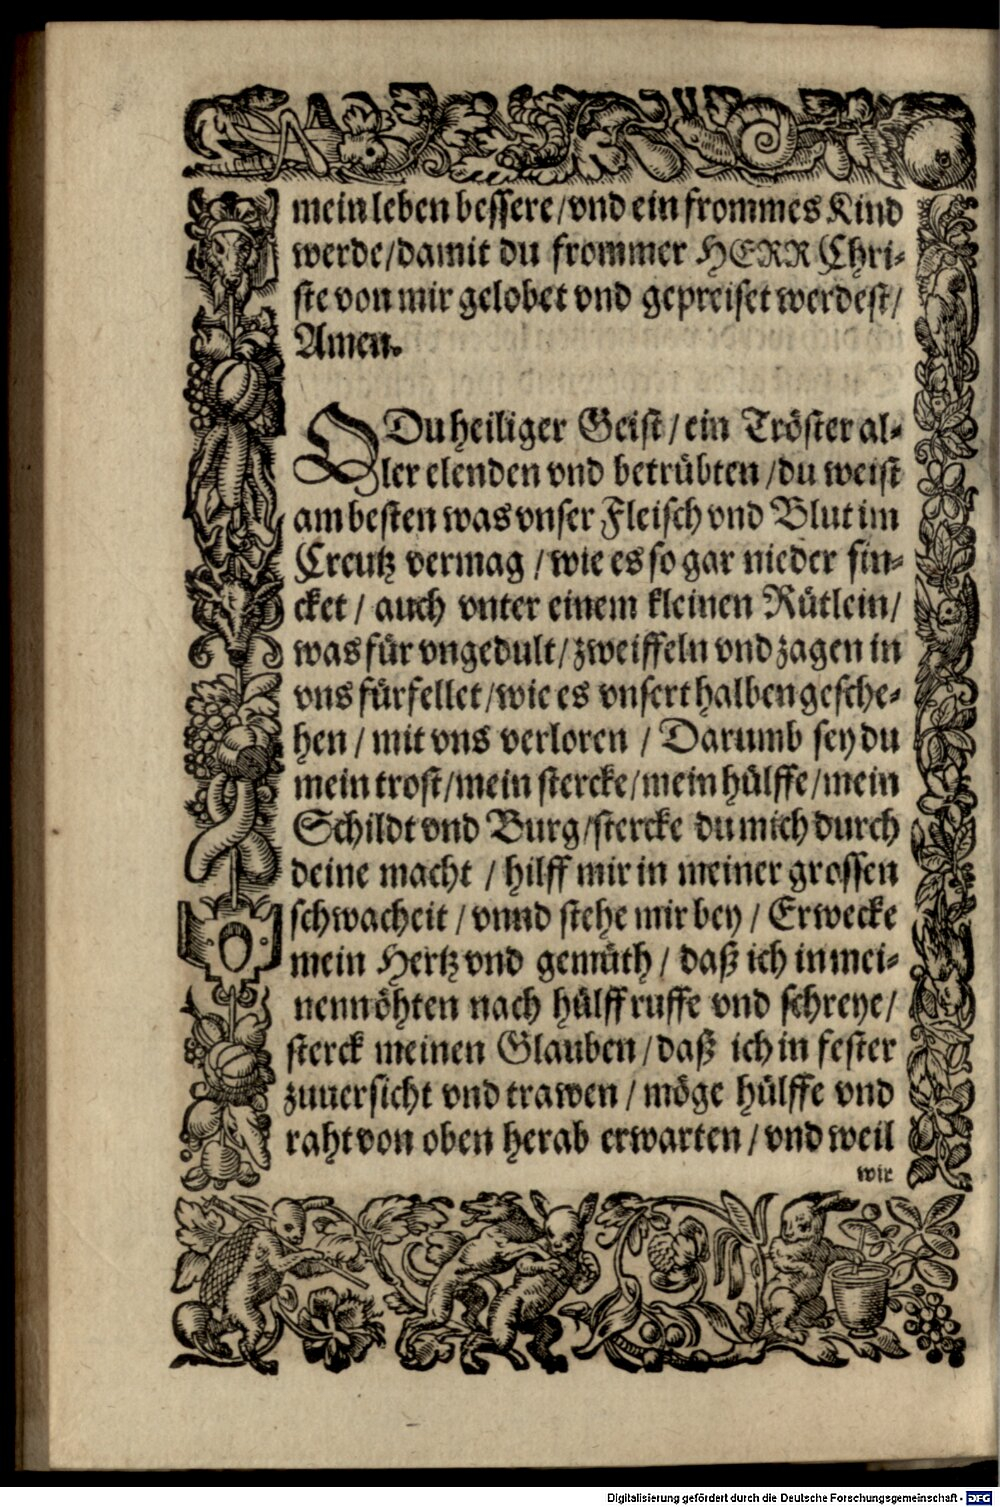 mein leben bessere/vnd ein frommes Kind
werde/damit du frommer HERR Chri-
ste von mir gelobet vnd gepreiset werdest/
Amen.
O Du heiliger Geist/ein Tröster al-
ler elenden vnd betrübten/du weist
am besten was vnser Fleisch vnd Blut im
Creutz vermag/wie es so gar nieder sin-
cket/auch vnter einem kleinen Rütlein/
was für vngedult/zweiffeln vnd zagen in
vns fürfellet/wie es vnsert halben gesche-
hen/mit vns verloren/Darumb sey du
mein trost/mein stercke/mein hülffe/mein
Schildt vnd Burg/stercke du mich durch
deine macht/hilff mir in meiner grossen
schwacheit/vnnd stehe mir bey/Erwecke
mein Hertz vnd gemüth/daß ich in mei-
nen nöhten nach hülff ruffe vnd schreye/
sterck meinen Glauben/daß ich in fester
zuuersicht vnd trawen/möge hülffe vnd
raht von oben herab erwarten/vnd weil
wir
Digitalisierung gefördert durch die Deutsche Forschungsgemeinschaft - DFG